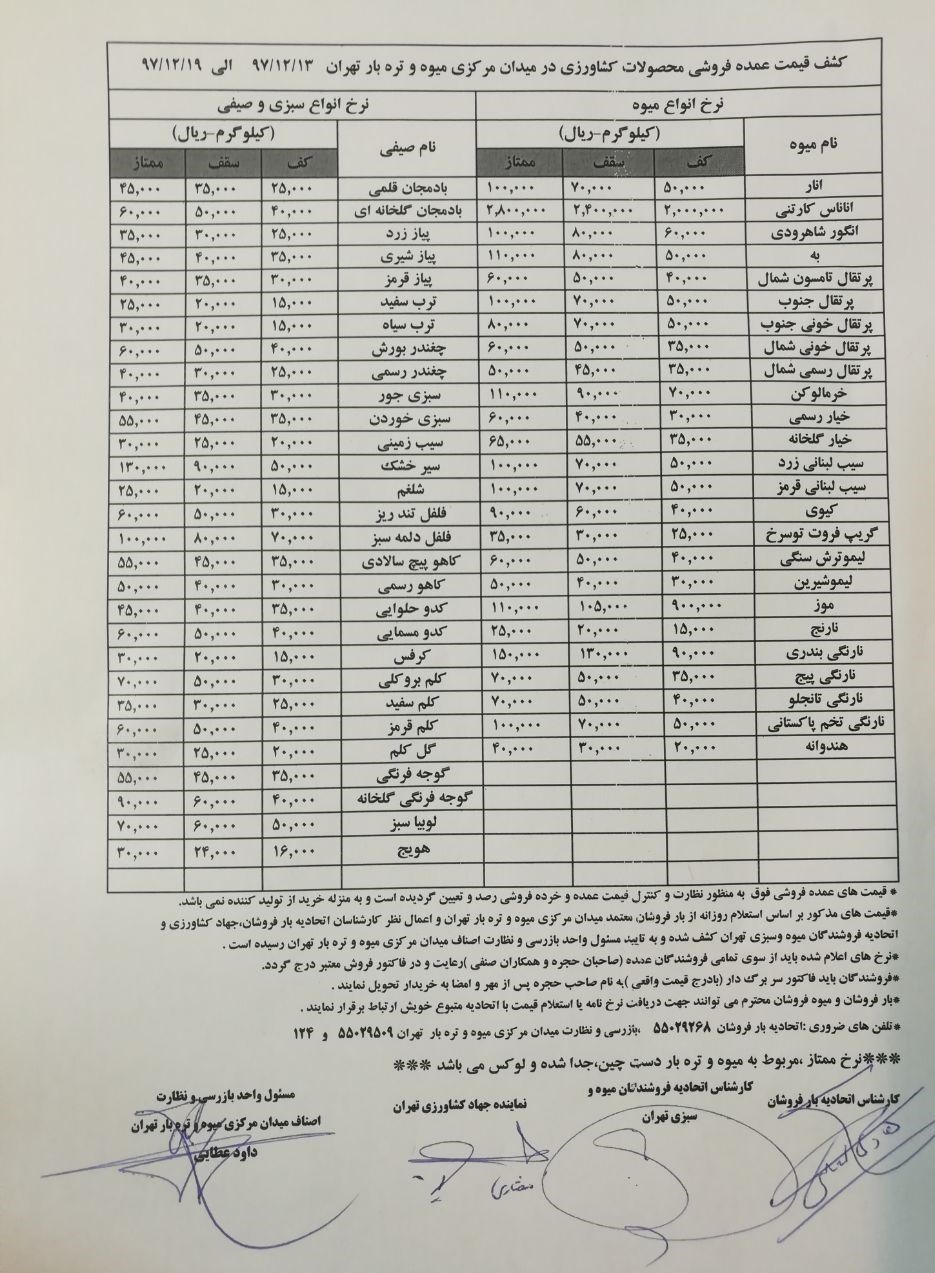 کشف قیمت عمده فروشی محصولات کشاورزی در میدان مرکزی میوه و تره بار تهران ۹۷/۱۲/۱۳ الی ۹۷/۱۲/۱۹
نرخ انواع میوه نرخ انواع سبزی و صیفی
نام میوه (کیلوگرم-ریال) نام صیفی (کیلوگرم-ریال)
کف سقف ممتاز کف سقف ممتاز
انار ۵۰,۰۰۰ ۷۰,۰۰۰ ۱۰۰,۰۰۰ بادمجان قلمی ۲۵,۰۰۰ ۳۵,۰۰۰ ۴۵,۰۰۰
اناناس کارتنی ۲,۰۰۰,۰۰۰ ۲,۴۰۰,۰۰۰ ۲,۸۰۰,۰۰۰ بادمجان گلخانه ای ۴۰,۰۰۰ ۵۰,۰۰۰ ۶۰,۰۰۰
انگور شاهرودی ۶۰,۰۰۰ ۸۰,۰۰۰ ۱۰۰,۰۰۰ پیاز زرد ۲۵,۰۰۰ ۳۰,۰۰۰ ۳۵,۰۰۰
به ۵۰,۰۰۰ ۸۰,۰۰۰ ۱۱۰,۰۰۰ پیاز شیری ۳۵,۰۰۰ ۴۰,۰۰۰ ۴۵,۰۰۰
پرتقال تامسون شمال ۴۰,۰۰۰ ۵۰,۰۰۰ ۶۰,۰۰۰ پیاز قرمز ۳۰,۰۰۰ ۳۵,۰۰۰ ۴۰,۰۰۰
پرتقال جنوب ۵۰,۰۰۰ ۷۰,۰۰۰ ۱۰۰,۰۰۰ ترب سفید ۱۵,۰۰۰ ۲۰,۰۰۰ ۲۵,۰۰۰
پرتقال خونی جنوب ۵۰,۰۰۰ ۷۰,۰۰۰ ۸۰,۰۰۰ ترب سیاه ۱۵,۰۰۰ ۲۰,۰۰۰ ۳۰,۰۰۰
پرتقال خونی شمال ۳۵,۰۰۰ ۵۰,۰۰۰ ۶۰,۰۰۰ چغندر بورش ۴۰,۰۰۰ ۵۰,۰۰۰ ۶۰,۰۰۰
پرتقال رسمی شمال ۳۵,۰۰۰ ۴۵,۰۰۰ ۵۰,۰۰۰ چغندر رسمی ۲۵,۰۰۰ ۳۰,۰۰۰ ۴۰,۰۰۰
خرمالوکن ۷۰,۰۰۰ ۹۰,۰۰۰ ۱۱۰,۰۰۰ سبزی جور ۳۰,۰۰۰ ۳۵,۰۰۰ ۴۰,۰۰۰
خیار رسمی ۳۰,۰۰۰ ۴۰,۰۰۰ ۶۰,۰۰۰ سبزی خوردن ۳۵,۰۰۰ ۴۵,۰۰۰ ۵۵,۰۰۰
خیار گلخانه ۳۵,۰۰۰ ۵۵,۰۰۰ ۶۵,۰۰۰ سیب زمینی ۲۰,۰۰۰ ۲۵,۰۰۰ ۳۰,۰۰۰
سیب لبنانی زرد ۵۰,۰۰۰ ۷۰,۰۰۰ ۱۰۰,۰۰۰ سیر خشک ۵۰,۰۰۰ ۹۰,۰۰۰ ۱۳۰,۰۰۰
سیب لبنانی قرمز ۵۰,۰۰۰ ۷۰,۰۰۰ ۱۰۰,۰۰۰ شلغم ۱۵,۰۰۰ ۲۰,۰۰۰ ۲۵,۰۰۰
کیوی ۴۰,۰۰۰ ۶۰,۰۰۰ ۹۰,۰۰۰ فلفل تند ریز ۳۰,۰۰۰ ۵۰,۰۰۰ ۶۰,۰۰۰
گریپ فروت توسرخ ۲۵,۰۰۰ ۳۰,۰۰۰ ۳۵,۰۰۰ فلفل دلمه سبز ۷۰,۰۰۰ ۸۰,۰۰۰ ۱۰۰,۰۰۰
لیموترش سنگی ۴۰,۰۰۰ ۵۰,۰۰۰ ۶۰,۰۰۰ کاهو پیچ سالادی ۳۵,۰۰۰ ۴۵,۰۰۰ ۵۵,۰۰۰
لیموشیرین ۳۰,۰۰۰ ۴۰,۰۰۰ ۵۰,۰۰۰ کاهو رسمی ۳۰,۰۰۰ ۴۰,۰۰۰ ۵۰,۰۰۰
موز ۹۰۰,۰۰۰ ۱۰۵,۰۰۰ ۱۱۰,۰۰۰ کدو حلوایی ۳۵,۰۰۰ ۴۰,۰۰۰ ۴۵,۰۰۰
نارنج ۱۵,۰۰۰ ۲۰,۰۰۰ ۲۵,۰۰۰ کدو مسمایی ۴۰,۰۰۰ ۵۰,۰۰۰ ۶۰,۰۰۰
نارنگی بندری ۹۰,۰۰۰ ۱۳۰,۰۰۰ ۱۵۰,۰۰۰ کرفس ۱۵,۰۰۰ ۲۰,۰۰۰ ۳۰,۰۰۰
نارنگی پیج ۳۵,۰۰۰ ۵۰,۰۰۰ ۷۰,۰۰۰ کلم بروکلی ۳۰,۰۰۰ ۵۰,۰۰۰ ۷۰,۰۰۰
نارنگی تانجلو ۴۰,۰۰۰ ۵۰,۰۰۰ ۷۰,۰۰۰ کلم سفید ۲۵,۰۰۰ ۳۰,۰۰۰ ۳۵,۰۰۰
نارنگی تخم پاکستانی ۵۰,۰۰۰ ۷۰,۰۰۰ ۱۰۰,۰۰۰ کلم قرمز ۴۰,۰۰۰ ۵۰,۰۰۰ ۶۰,۰۰۰
هندوانه ۲۰,۰۰۰ ۳۰,۰۰۰ ۴۰,۰۰۰ گل کلم ۲۰,۰۰۰ ۲۵,۰۰۰ ۳۰,۰۰۰
گوجه فرنگی ۳۵,۰۰۰ ۴۵,۰۰۰ ۵۵,۰۰۰
گوجه فرنگی گلخانه ۴۰,۰۰۰ ۶۰,۰۰۰ ۹۰,۰۰۰
لوبیا سبز ۵۰,۰۰۰ ۶۰,۰۰۰ ۷۰,۰۰۰
هویج ۱۶,۰۰۰ ۲۴,۰۰۰ ۳۰,۰۰۰
* قیمت های عمده فروشی فوق به منظور نظارت و کنترل قیمت عمده و خرده فروشی رصد و تعیین گردیده است و به منزله خرید از تولید کننده نمی باشد.
*قیمت های مذکور بر اساس استعلام روزانه از بار فروشان معتمد میدان مرکزی میوه و تره بار تهران و اعمال نظر کارشناسان اتحادیه بار فروشان،جهاد کشاورزی و
اتحادیه فروشندگان میوه وسبزی تهران کشف شده و به تایید مسئول واحد بازرسی و نظارت اصناف میدان مرکزی میوه و تره بار تهران رسیده است .
*نرخ های اعلام شده باید از سوی تمامی فروشندگان عمده (صاحبان حجره و همکاران صنفی )رعایت و در فاکتور فروش معتبر درج گردد.
*فروشندگان باید فاکتور سر برگ دار (بادرج قیمت واقعی )به نام صاحب حجره پس از مهر و امضا به خریدار تحویل نمایند .
*بار فروشان و میوه فروشان محترم می توانند جهت دریافت نرخ نامه یا استعلام قیمت با اتحادیه متبوع خویش ارتباط برقرار نمایند .
*تلفن های ضروری :اتحادیه بار فروشان ۵۵۰۲۹۲۶۸ ،بازرسی و نظارت میدان مرکزی میوه و تره بار تهران ۵۵۰۲۹۵۰۹ و ۱۲۴
***نرخ ممتاز ،مربوط به میوه و تره بار دست چین،جدا شده و لوکس می باشد ***
کارشناس اتحادیه بار فروشان
کارشناس اتحادیه فروشندگان میوه و
سبزی تهران
نماینده جهاد کشاورزی تهران
مسئول واحد بازرسی و نظارت
اصناف میدان مرکزی میوه و تره بار تهران
داود عطایی